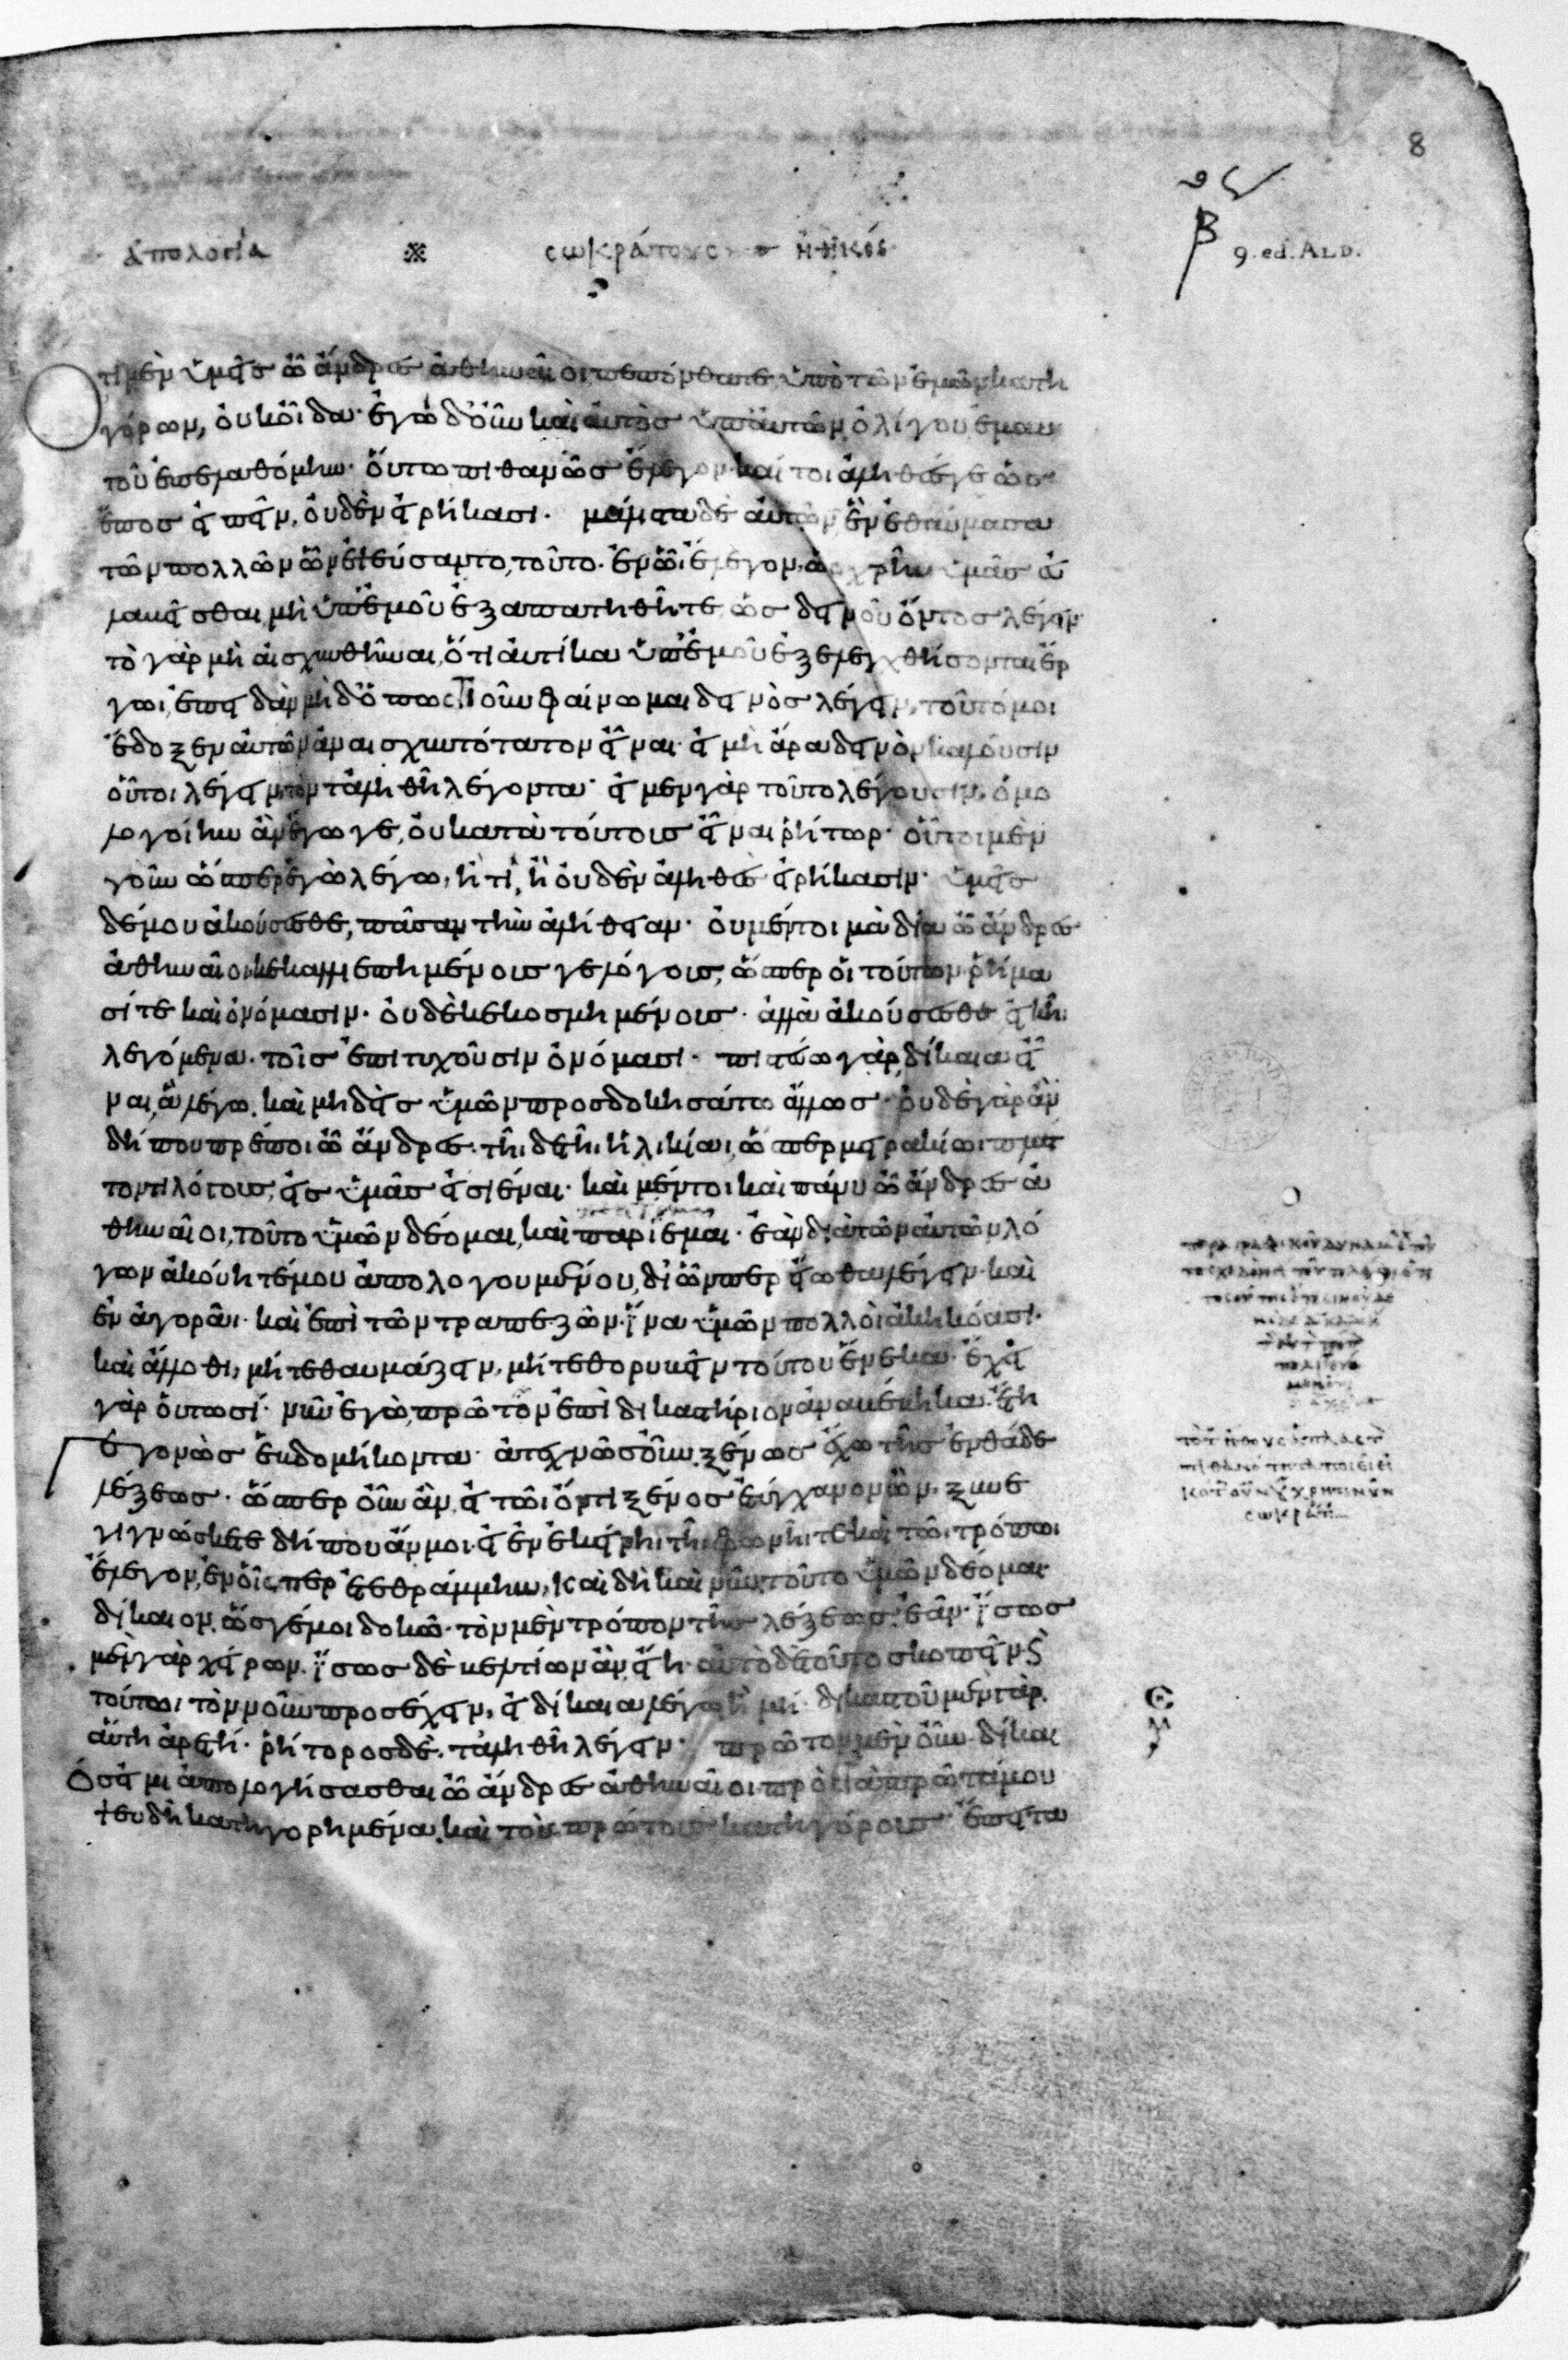 8
β
9. ed. ALD.
ἀπολογία ※ σωκράτους ἠθικός
τι μὲν ὑμεῖς ὦ ἄνδρες ἀθηναῖοι πεπόνθατε ὑπὸ τῶν ἐμῶν κατη
γόρων, οὐκ οἶδα· ἐγὼ δ' οὖν καὶ αὐτὸς ὑπ' αὐτῶν ὀλίγου ἐμαυ
τοῦ ἐπελαθόμην· οὕτω πιθανῶς ἔλεγον· καί τοι ἀληθές γε ὡς
ἔπος εἰπεῖν, οὐδὲν εἰρήκασι. μάλιστα δὲ αὐτῶν ἓν ἐθαύμασα
τῶν πολλῶν ὧν ἐψεύσαντο, τοῦτο· ἐν ὧι ἔλεγον, ὡς χρῆν ὑμᾶς εὐ
λαβεῖσθαι, μὴ ὑπ' ἐμοῦ ἐξαπατηθῆτε ὡς δεινοῦ ὄντος λέγειν
τὸ γὰρ μὴ αἰσχυνθῆναι, ὅτι αὐτίκα ὑπ' ἐμοῦ ἐξελεγχθήσονται ἔρ
γωι, ἐπειδὰν μηδ' ὁπωστιοῦν φαίνωμαι δεινὸς λέγειν, τοῦτό μοι
ἔδοξεν αὐτῶν ἀναισχυντότατον εἶναι· εἰ μὴ ἄρα δεινὸν καλοῦσιν
οὗτοι λέγειν τὸν τἀληθῆ λέγοντα· εἰ μὲν γὰρ τοῦτο λέγουσιν, ὁμο
λογοίην ἂν ἔγωγε, οὐ κατὰ τούτους εἶναι ῥήτωρ· οὗτοι μὲν
γοῦν ὥσπερ ἐγὼ λέγω, ἤ τι, ἢ οὐδὲν ἀληθὲς εἰρήκασιν· ὑμεῖς
δέ μου ἀκούσεσθε, πᾶσαν τὴν ἀλήθειαν· οὐ μέντοι μὰ δία ὦ ἄνδρες
ἀθηναῖοι κεκαλλιεπημένους γε λόγους, ὥσπερ οἱ τούτων ῥήμα
σί τε καὶ ὀνόμασιν· οὐδὲ κεκοσμημένους· ἀλλὰ ἀκούσεσθε εἰκῆι
λεγόμενα· τοῖς ἐπιτυχοῦσιν ὀνόμασι· πιστεύω γὰρ, δίκαια εἶ
ναι, ἃ λέγω, καὶ μηδεὶς ὑμῶν προσδοκησάτω ἄλλως· οὐδὲ γὰρ ἂν
δήπου πρέποι ὦ ἄνδρες· τῆιδε τῆι ἡλικίαι, ὥσπερ μειρακίωι πλάτ
τοντι λόγους, εἰς ὑμᾶς εἰσιέναι· καὶ μέντοι καὶ πάνυ ὦ ἄνδρες ἀ
θηναῖοι, τοῦτο ὑμῶν δέομαι, καὶ παρίεμαι· ἐὰν διὰ τῶν αὐτῶν λό
γων ἀκούητέ μου ἀπολογουμένου, δι' ὧνπερ εἴωθα λέγειν· καὶ
ἐν ἀγορᾶι· καὶ ἐπὶ τῶν τραπεζῶν· ἵνα ὑμῶν πολλοὶ ἀκηκόασι·
καὶ ἄλλοθι, μήτε θαυμάζειν, μήτε θορυβεῖν τούτου ἕνεκα· ἔχει
γὰρ οὑτωσί· νῦν ἐγὼ, πρῶτον ἐπὶ δικαστήριον ἀναβέβηκα· ἔτη
γεγονὼς ἑβδομήκοντα· ἀτεχνῶς οὖν, ξένως ἔχω τῆς ἐνθάδε
λέξεως· ὥσπερ οὖν ἂν, εἰ τῶι ὄντι ξένος ἐτύγχανον ὢν, ξυνε
γιγνώσκετε δήπου ἄν μοι· εἰ ἐν ἐκείνηι τῆι φωνῆι τε καὶ τῶι τρόπωι
ἔλεγον, ἐν οἷσπερ ἐτεθράμμην, καὶ δὴ καὶ νῦν τοῦτο ὑμῶν δέομαι
δίκαιον, ὥς γέ μοι δοκῶ· τὸν μὲν τρόπον τῆς λέξεως, ἐᾶν· ἴσως
μὲν γὰρ χείρων, ἴσως δὲ βελτίων ἂν εἴη· αὐτὸ δὲ τοῦτο σκοπεῖν ϗ
τούτωι τὸν νοῦν προσέχειν, εἰ δίκαια λέγω ἢ μή· δικαστοῦ μὲν γὰρ
αὕτη ἀρετή· ῥήτορος δὲ, τἀληθῆ λέγειν· πρῶτον μὲν οὖν δίκαι
ός εἰμι ἀπολογήσασθαι ὦ ἄνδρες ἀθηναῖοι πρὸς τὰ πρῶτά μου
ψευδῆ κατηγορημένα, καὶ τοὺς πρώτους κατηγόρους· ἔπειτα
σωκράτη